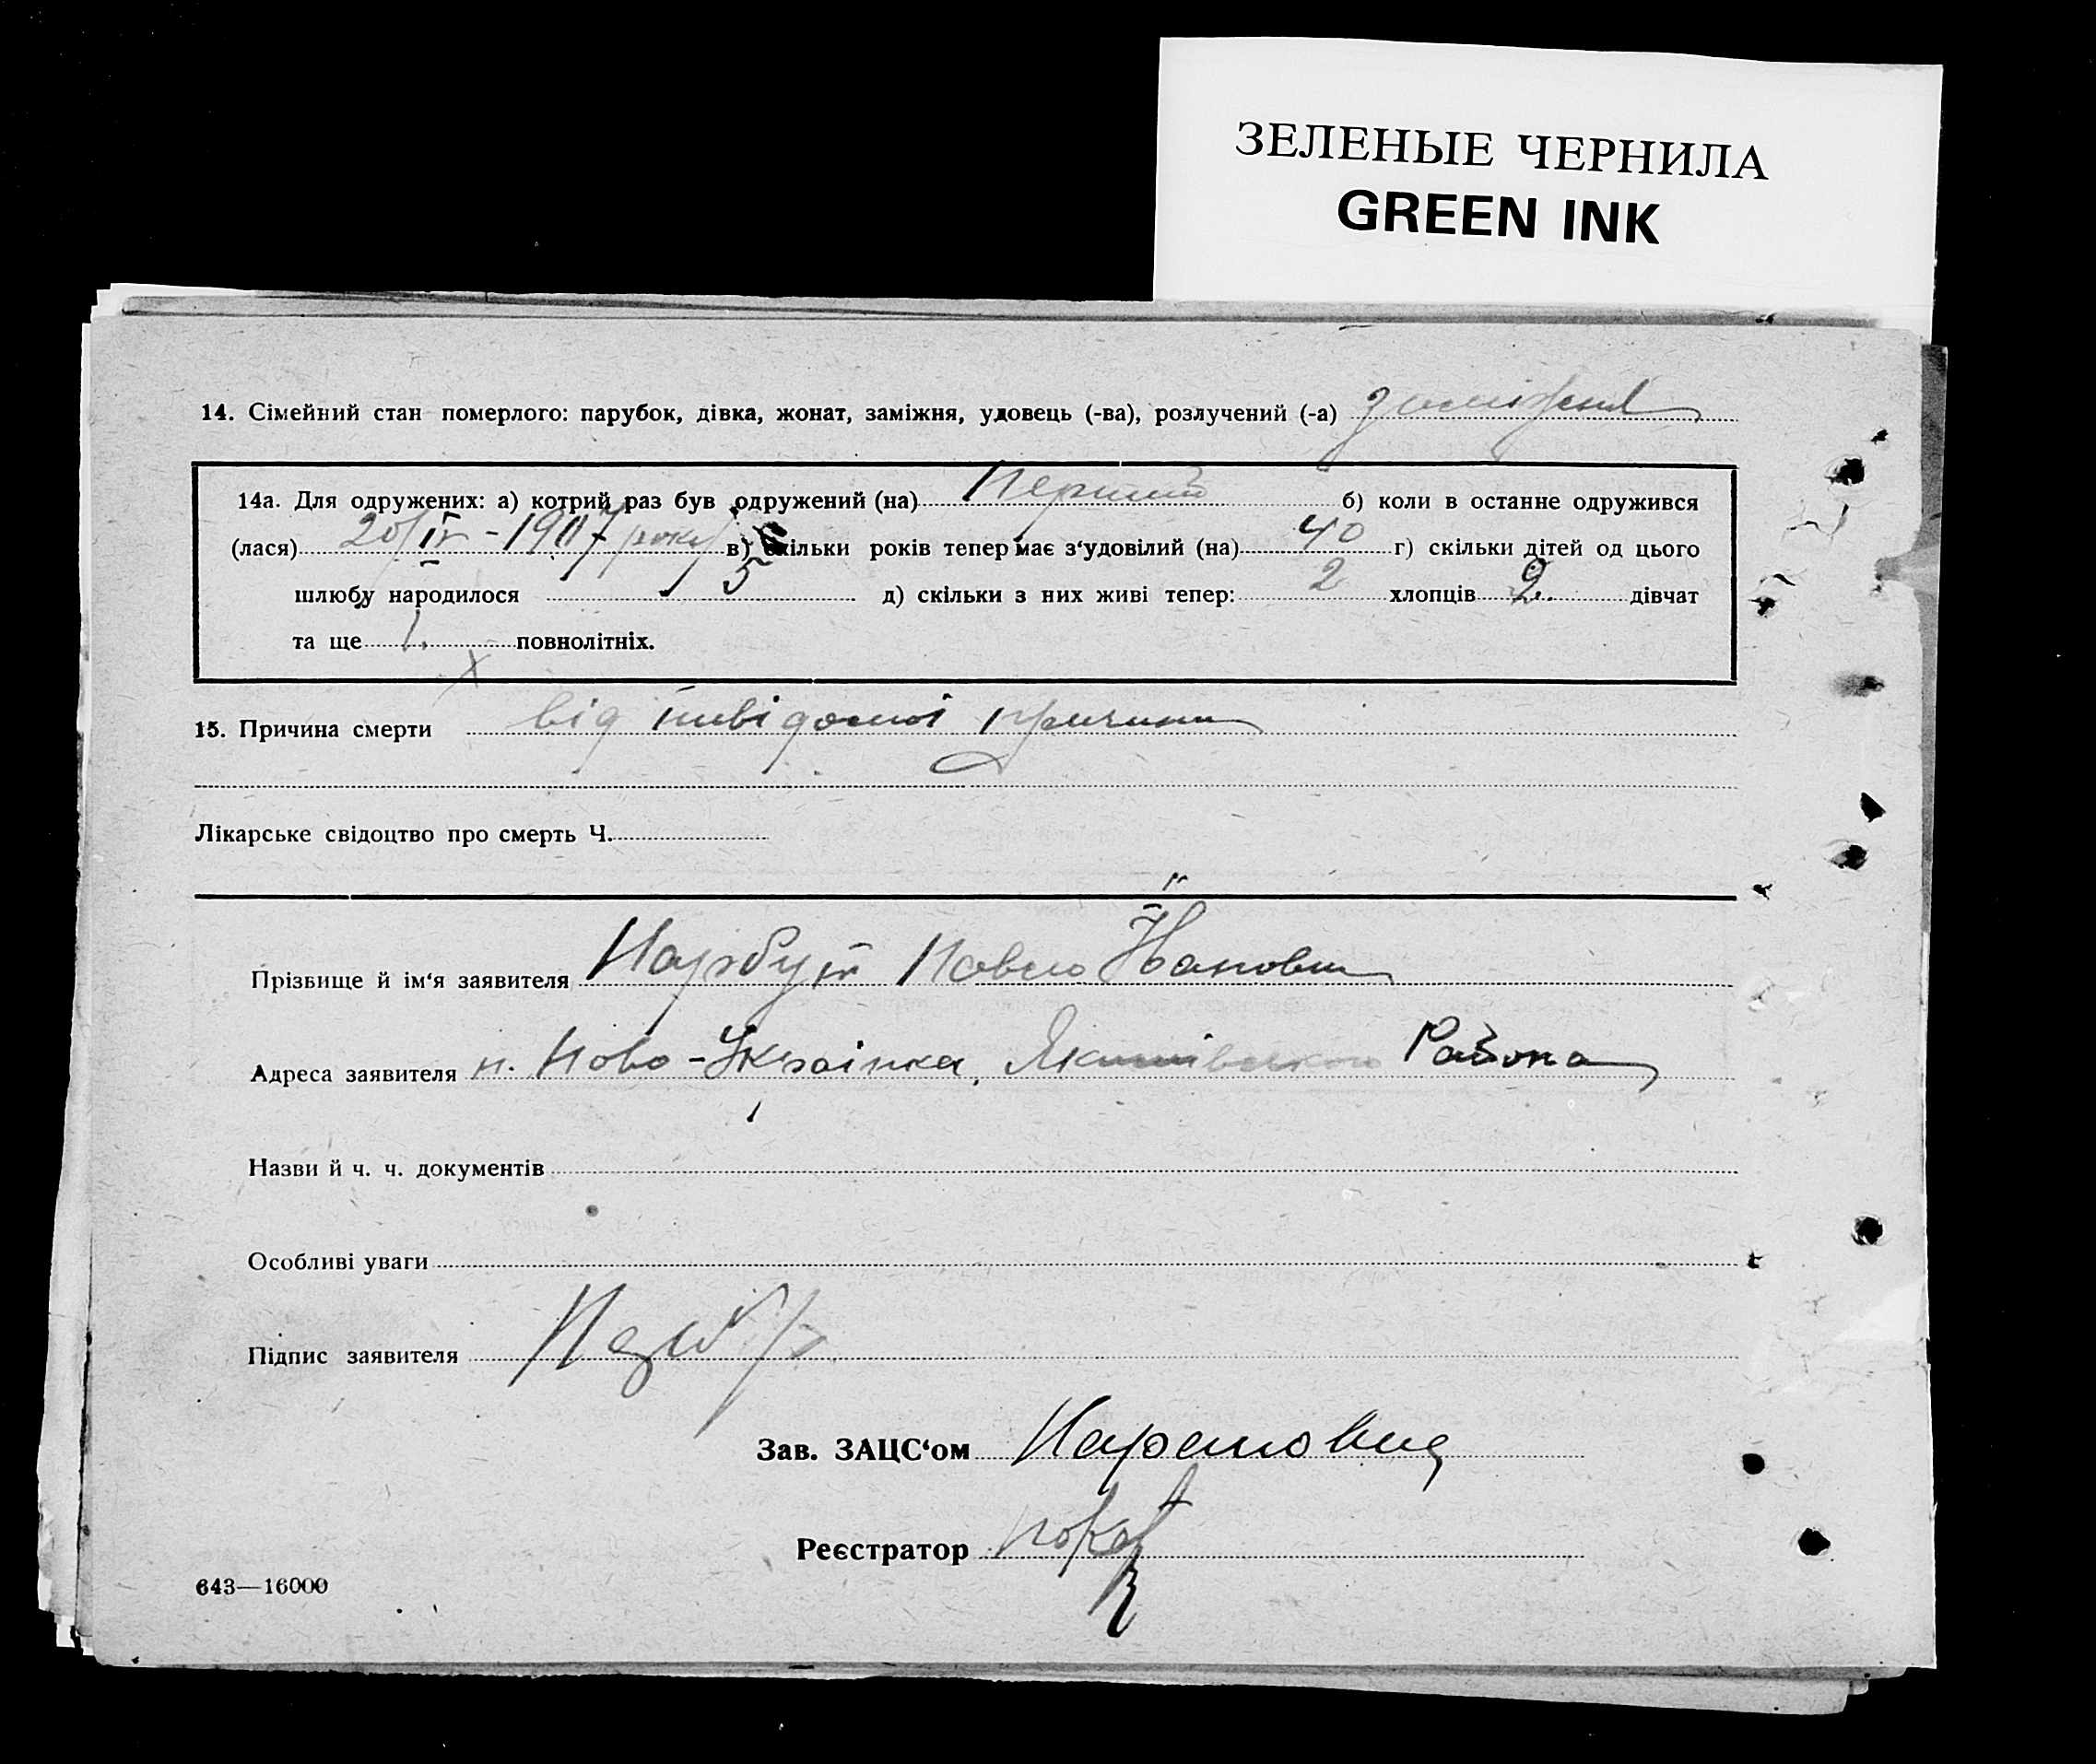 ЗЕЛЕНЫЕ ЧЕРНИЛА
GREEN INK
14. Сімейний стан померлого: парубок, дівка, жонат, заміжня, удовець (-ва), розлучений (-а) заміжня
14а. Для одружених: а) котрий раз був одружений (на) Перший б) коли в останне одружився
(лася) 20/IV - 1907 року в) скільки років тепер має з'удовілий (на) 40 г) скільки дітей од цього
шлюбу народилося 5 д) скільки з них живі тепер: 2 хлопців 2. дівчат
та ще 1. повнолітніх.
15. Причина смерти від невідомої причини
Лікарське свідоцтво про смерть Ч.
Прізвище й ім'я заявителя Павло Іванович
Адреса заявителя н. Ново-Українка, Района
Назви й ч. ч. документів
Особливі уваги
Підпис заявителя
Зав. ЗАЦС'ом
Реєстратор
643—16000